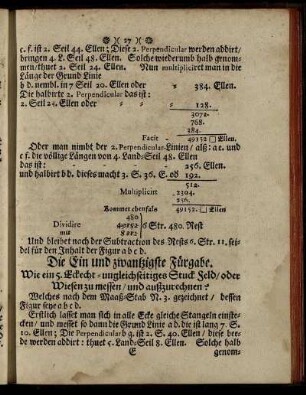 )( 27 )(
c. f. ist 2. Seil 44. Ellen; Diese 2. Perpendicular werden addirt/
bringen 4. L. Seil 48. Ellen. Solche wiederumb halb genom-
men/thuet 2. Seil 24. Ellen. Nun multiplicirt man in die
Länge der Grund Linie
b d. nembl. in 7 Seil 20. Ellen oder 384. Ellen.
Die halbirte 2. Perpendicular das ist:
2. Seil 24. Ellen oder 128.
3072.
768.
384.
Facit 49152 □ Ellen.
Oder man nimbt der 2. Perpendicular-Linien/ alß: a e. und
c f. die völlige Längen von 4. Land-Seil 48. Ellen
das ist: 256. Ellen.
und halbiert b d. dieses macht 3. S. 36. E. od 192.
512.
Multiplicirt 2304.
256.
Kommet ebenfals 49152. □ Ellen.
480
Dividire 49152 6 Str. 480. Rest
mit 8192
Und bleibet nach der Subtraction des Rests 6. Str. 11. sei-
del für den Inhalt der Figur a b c d.
Die Ein und zwantzigste Fürgabe.
Wie ein 5. Eckecht-ungleichseitiges Stuck Feld/oder
Wiesen zu messen/ und außzurechnen?
Welches nach dem Maaß-Stab N. 3. gezeichnet / dessen
Figur seye a b c d.
Erstlich lasset man sich in alle Ecke gleiche Stangeln einste-
cken/ und messet so dann die Grund Linie a d. die ist lang 7. S.
10. Ellen; Die Perpendicular b g. ist 2. S. 40. Ellen/ diese bee-
de werden addirt: thuet 5. Land-Seil 8. Ellen. Solche halb
E genom-